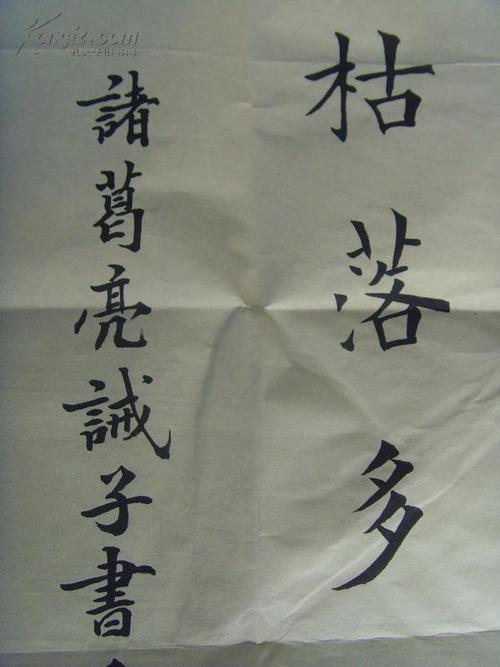 枯落多
諸葛亮誡子書
Kongfz.com
孔夫子旧书网